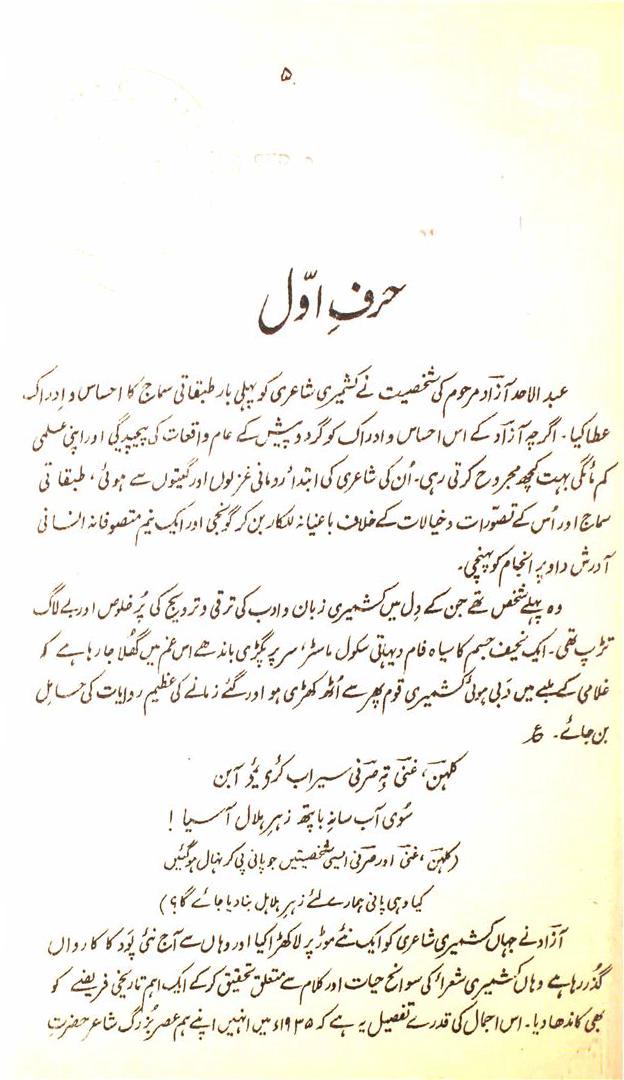 ۵
حرفِ اوّل
عبد الاحد آزاد مرحوم کی شخصیت نے کشمیری شاعری کو پہلی بار طبقاتی سماج کا احساس و ادراک
عطا کیا۔ اگرچہ آزاد کے اس احساس و ادراک کو گرد و پیش کے عام واقعات کی پیچیدگی اور اپنی علمی
کم مائگی بہت کچھ مجروح کرتی رہی۔ اُن کی شاعری کی ابتدا رُومانی غزلوں اور گیتوں سے ہوئی، طبقاتی
سماج اور اُس کے تصوّرات و خیالات کے خلاف باغیانہ للکار بن کر گونجی اور ایک نیم متصوفانہ انسانی
آدرش واد پر انجام کو پہنچی۔
وہ پہلے شخص تھے جن کے دِل میں کشمیری زبان و ادب کی ترقی و ترویج کی پُر خلوص اور بے لاگ
تڑپ تھی۔ ایک نحیف جسم کا سیاہ فام دیہاتی سکول ماسٹر، سر پر پگڑی باندھے اس غم میں گھُلا جا رہا ہے کہ
غلامی کے ملبے میں دَبی ہوئی کشمیری قوم پھر سے اُٹھ کھڑی ہو اور گئے زمانے کی عظیم روایات کی حامِل
بن جائے۔ ع
کلہن، غنی تہٕ صرفی سیراب کٔری یمۍ آبن
سُوی آب سانہِ باپتھ زہرِ ہلال آسیا !
(کلہن، غنی اور صرفی ایسی شخصیتیں جو پانی پی کر نہال ہو گئیں
کیا وہی پانی ہمارے لئے زہرِ ہلاہل بنا دیا جائے گا؟)
آزاد نے جہاں کشمیری شاعری کو ایک نئے موڑ پر لا کھڑا کیا اور وہاں سے آج نئی پَود کا کارواں
گذر رہا ہے وہاں کشمیری شعراؑ کی سوانح حیات اور کلام سے متعلق تحقیق کر کے ایک اہم تاریخی فریضے کو
بھی کاندھا دیا۔ اس اجمال کی قدرے تفصیل یہ ہے کہ ۱۹۳۵ء میں انہیں اپنے ہم عصر بزرگ شاعر حضرتِ